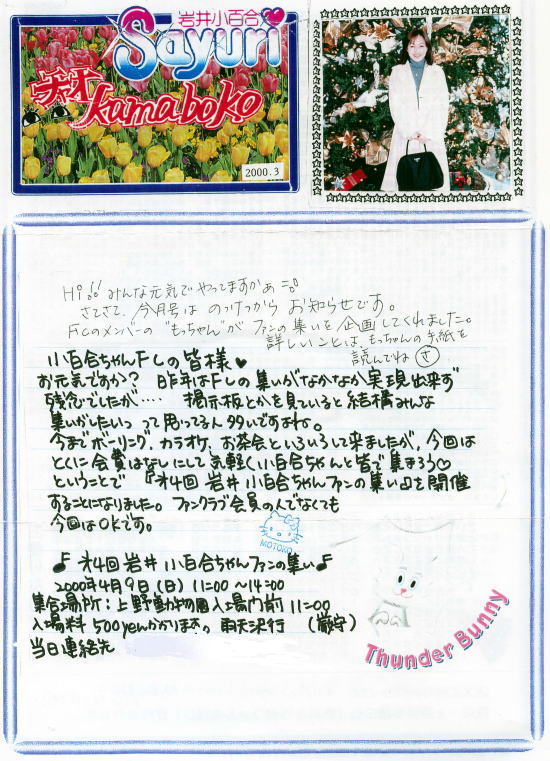 岩井小百合
Sayuri
kamaboko
2000.3
Hi!! みんな元気でやってますかぁ=。
さてさて、今月号は のっけから お知らせです。
FCのメンバーの "もっちゃん"が ファンの集いを企画してくれました。
詳しいことは、もっちゃんの手紙を
読んでね さ
小百合ちゃんFCの皆様♥
お元気ですか? 昨年はFCの集いがなかなか実現出来ず
残念でしたが‥‥ 掲示板とかを見ていると結構みんな
集いがしたいっ って思ってる人多いですよね。
今までボーリング、カラオケ、お茶会といろいろして来ましたが、今回は
とくに会費はなしにして気軽く小百合ちゃんと皆で集まろう♡
ということで 『才4回 岩井小百合ちゃんファンの集い』を開催
することになりました。ファンクラブ会員の人でなくても
今回はOKです。
MOTOKO
♪ 才4回 岩井 小百合ちゃんファンの集い♪
2000年4月9日(日) 11:00~14:00
集合場所:上野動物園入場門前 11:00
入場料 500yenかかります。雨天決行 (厳守)
当日連絡先
Thunder Bunny